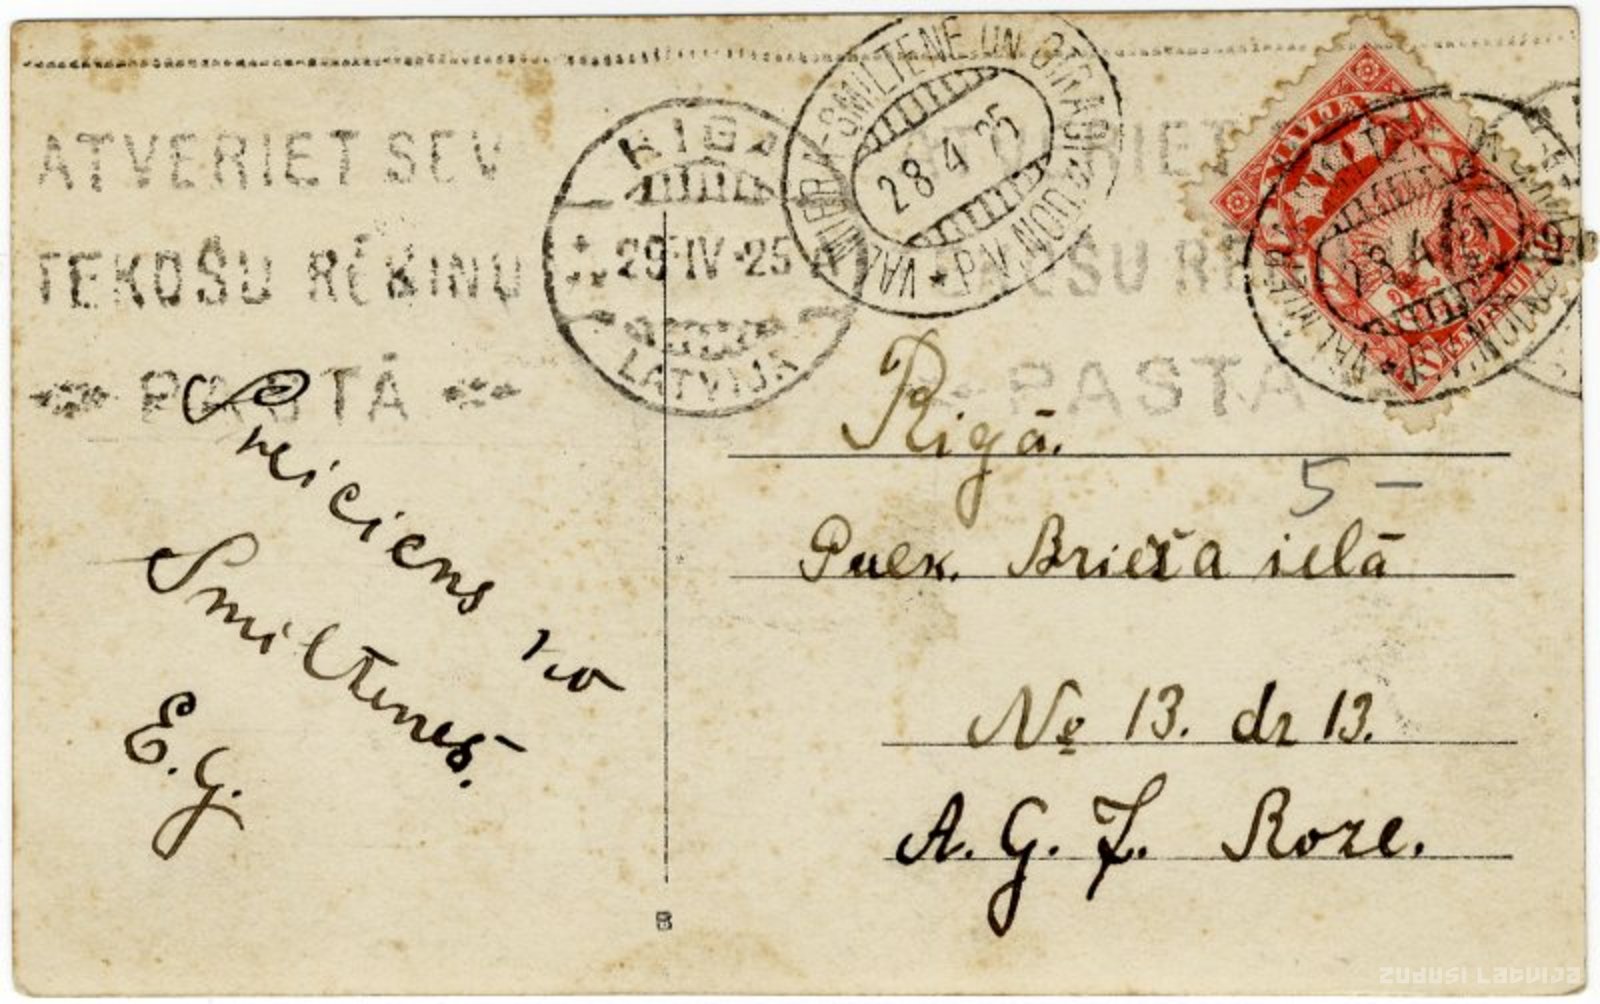 ATVERIET SEV
TEKOŠU RĒĶINU
PASTĀ
RIGA
29·IV·25
LATVIJA
VALMIERA-SMILTENE UN ATPAKAĻ
28 4 25
P.V. NOD.
LATVIJA
28 4 25
PASTĀ
Rigā.
5 –
Pulk. Brieža ielā
№ 13. dz 13.
A. G. Z. Roze.
Sveiciens no
Smiltenes.
E. G.
B
ZUDUSI LATVIJA